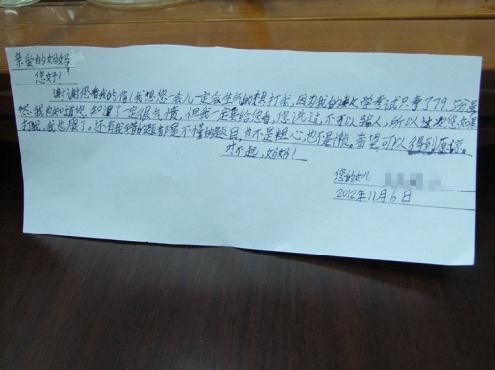 亲爱的妈妈
您好!
谢谢您看我的信!我想您一会儿一定会生气的想打我,因为我的数学考试只考了79,
我也知道您知道了一定很气愤,但我一定要给您看,您说过,不可以骗人,所以
打我,我也认了,还有我错的题都是不懂的题目,也不是粗心,也不是懒。希望可以得到原谅。
对不起,妈妈!
您的女儿
2012年11月6日